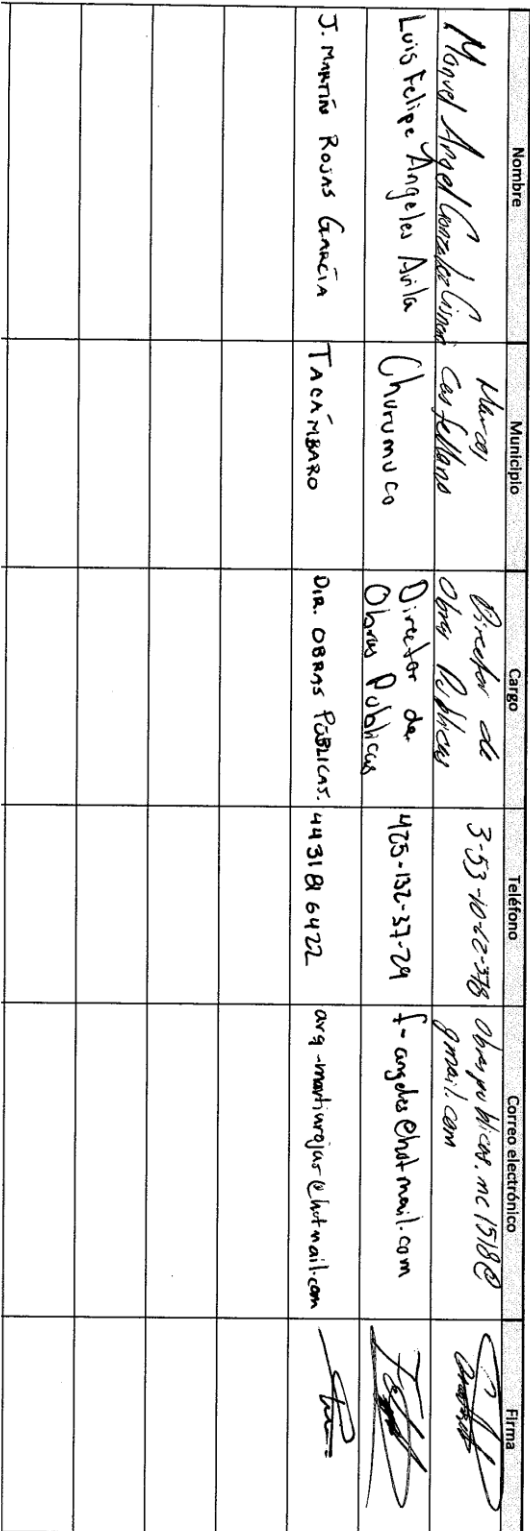 Nombre Municipio Cargo Teléfono Correo electrónico Firma
Manuel Angel Gonzalez Marcos Castellano Director de Obras Publicas obraspublicas.mc1518@gmail.com
Luis Felipe Angeles Avila Churumuco Director de Obras Publicas 425-132-37-29 f-angeles@hotmail.com
J. MARTÍN ROJAS GARCÍA TACÁMBARO DIR. OBRAS PÚBLICAS. 4431816422 arq-martinrojas@hotmail.com